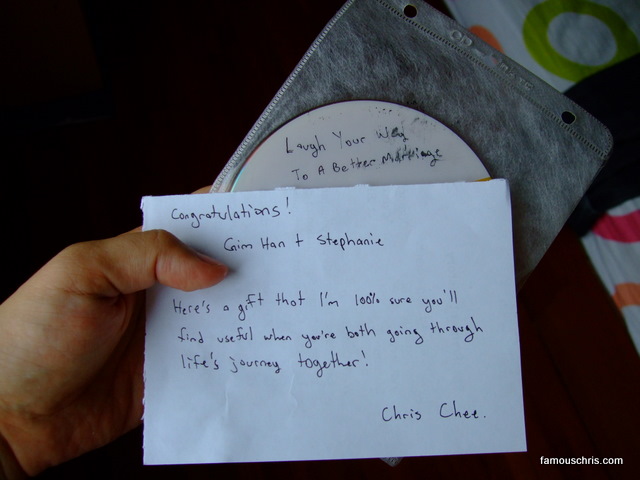 Laugh Your Way
To A Better Marriage
Congratulations!
Gim Han + Stephanie
Here's a gift that I'm 100% sure you'll
find useful when you're both going through
life's journey together!
Chris Chee.
famouschris.com